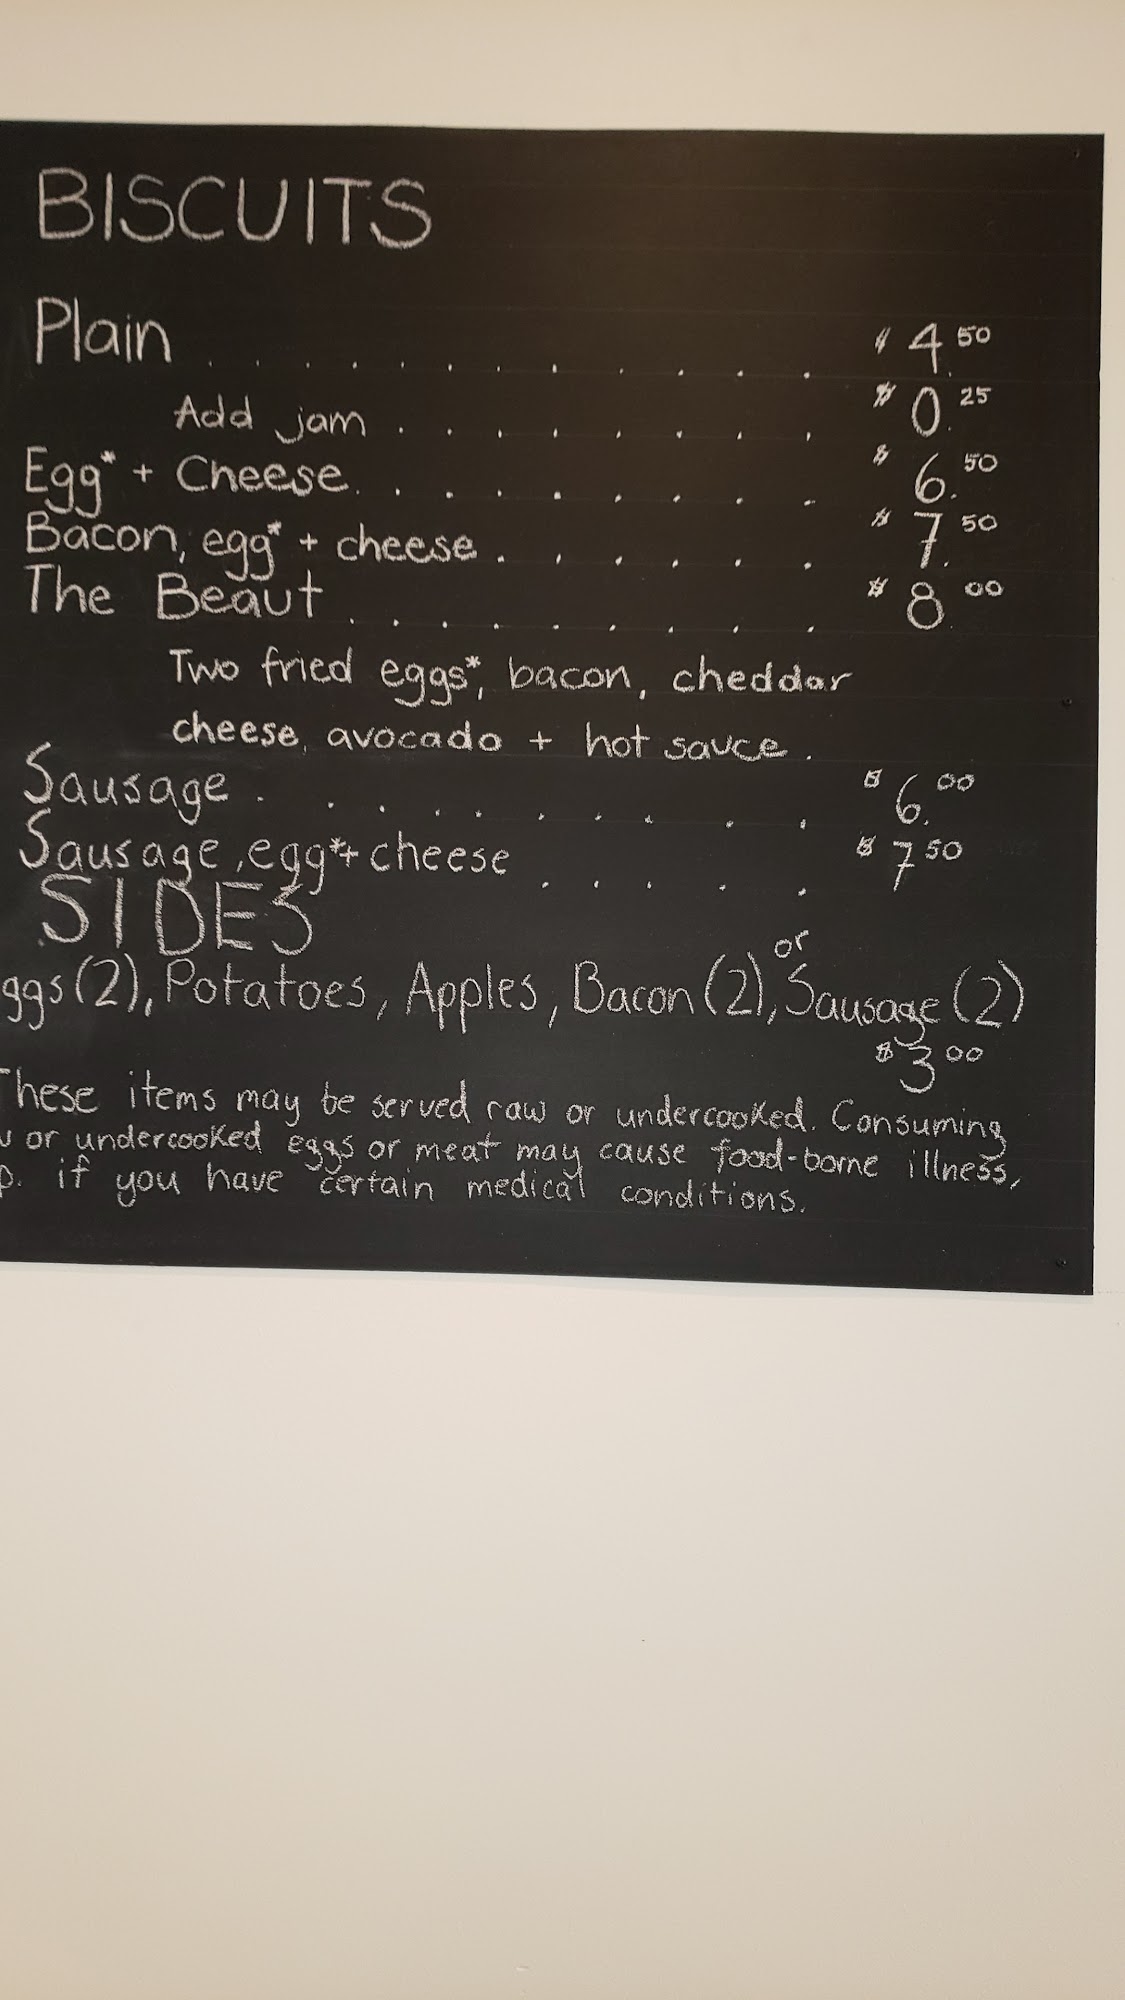 BISCUITS
Plain . . . . . . . . . . . $4.50
Add jam . . . . . . . . $0.25
Egg* + Cheese. . . . . . . . . $6.50
Bacon, egg* + cheese . . . . . . $7.50
The Beaut . . . . . . . . . $8.00
Two fried eggs*, bacon, cheddar
cheese, avocado + hot sauce.
Sausage . . . . . . . . . . $6.00
Sausage, egg*+ cheese . . . . . $7.50
SIDES
ggs (2), Potatoes, Apples, Bacon (2), or Sausage (2)
$3.00
These items may be served raw or undercooked. Consuming
or undercooked eggs or meat may cause food-borne illness,
p. if you have certain medical conditions.